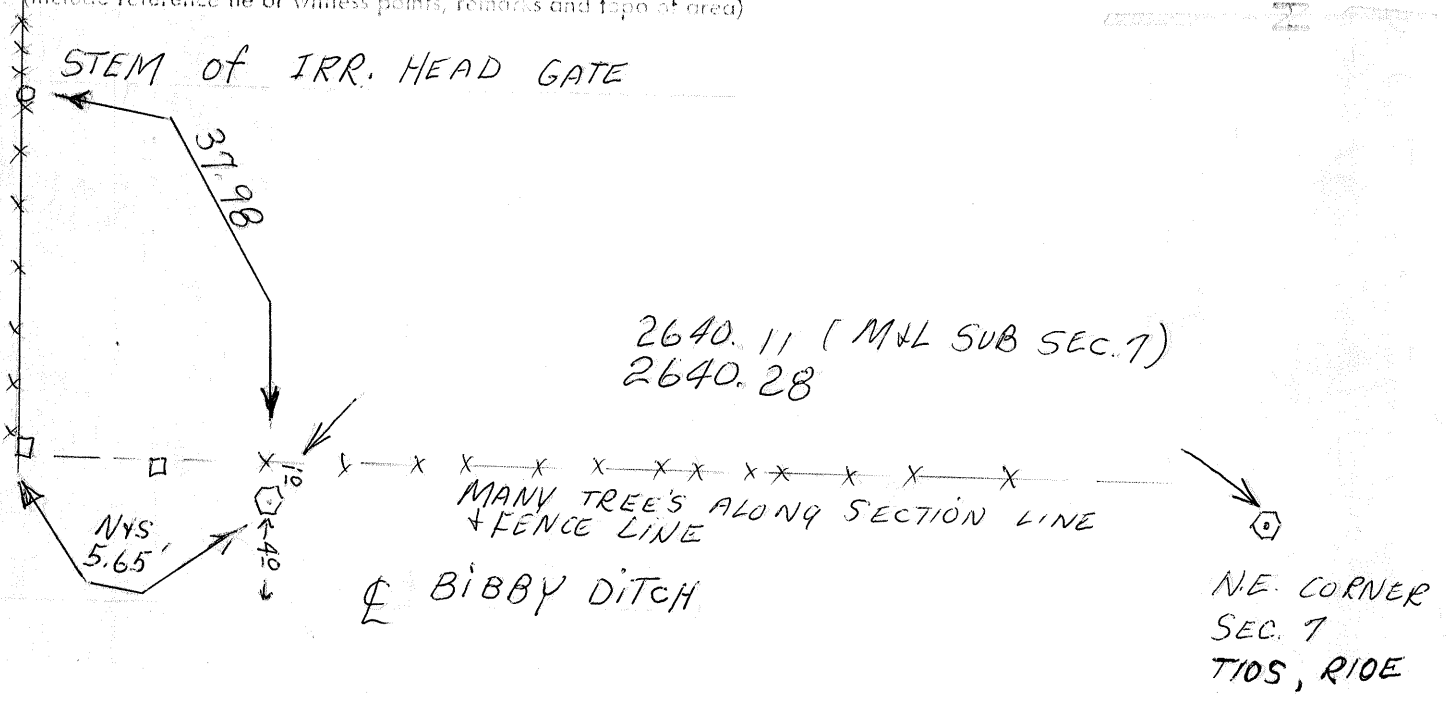 (include reference tie or witness points, remarks and topo of area)
STEM of IRR. HEAD GATE
37.98
2640.11 (M&L SUB SEC. 7)
2640.28
1.0
MANY TREE'S ALONG SECTION LINE
& FENCE LINE
N&S
5.65'
4.0
℄ BIBBY DITCH
N.E. CORNER
SEC. 7
T10S, R10E